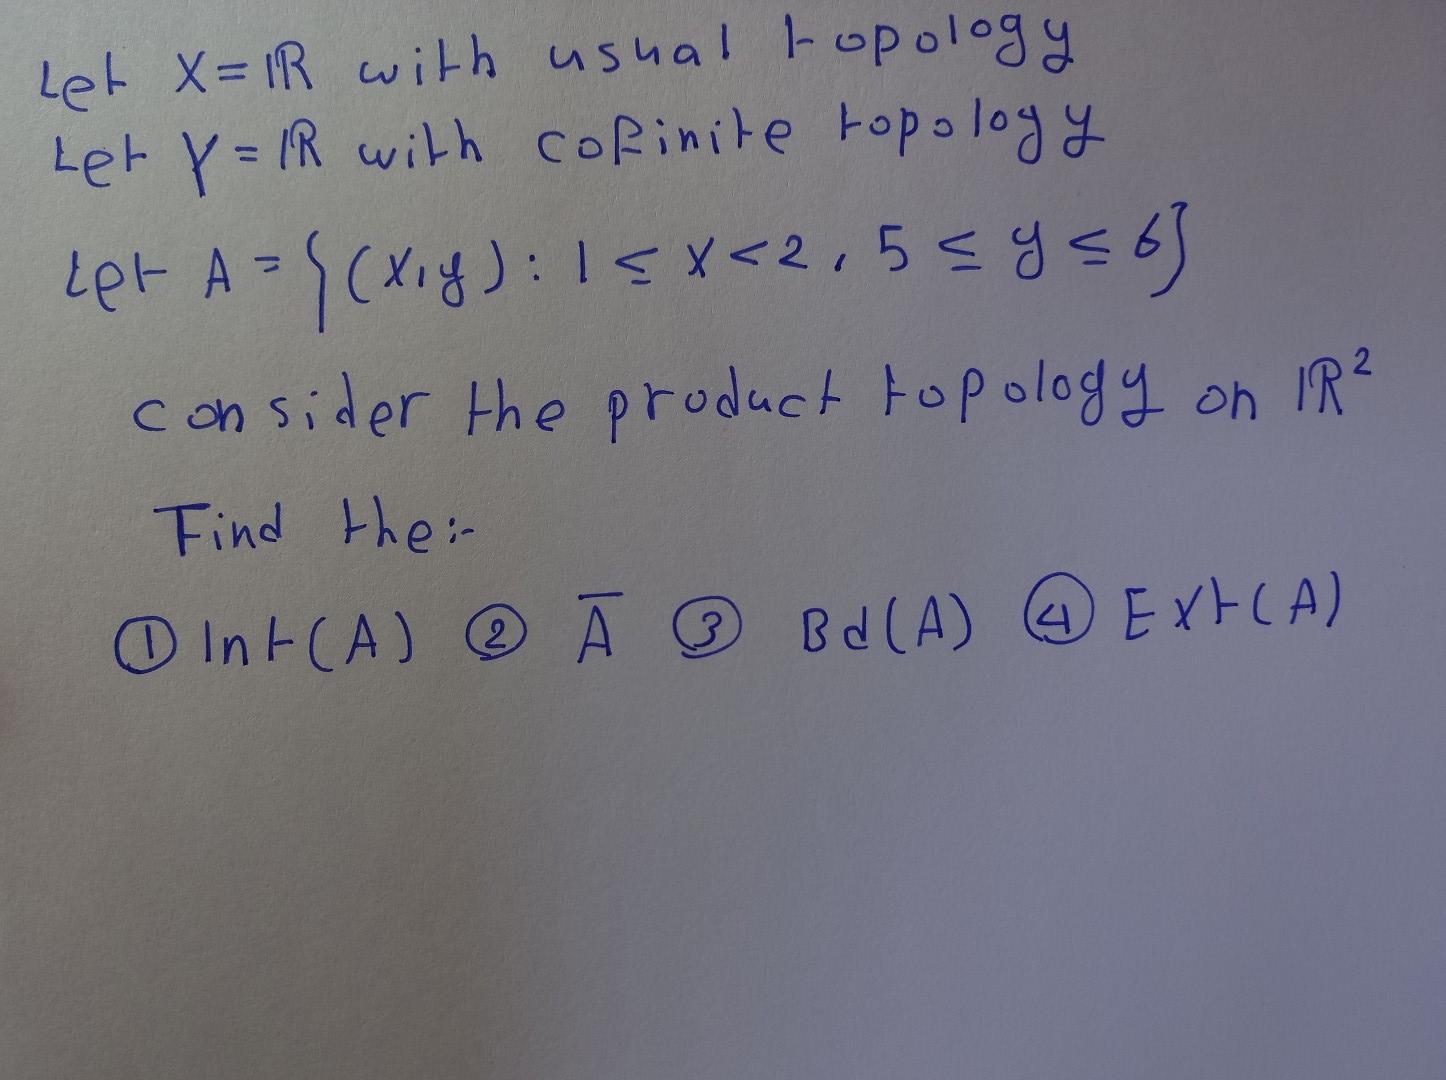 Let X=ℝ with usual topology
Let Y=ℝ with cofinite topology
Let A = {(x,y): 1 ≤ x < 2, 5 ≤ y ≤ 6}
consider the product topology on ℝ²
Find the:-
① Int(A) ② A̅ ③ Bd(A) ④ Ext(A)